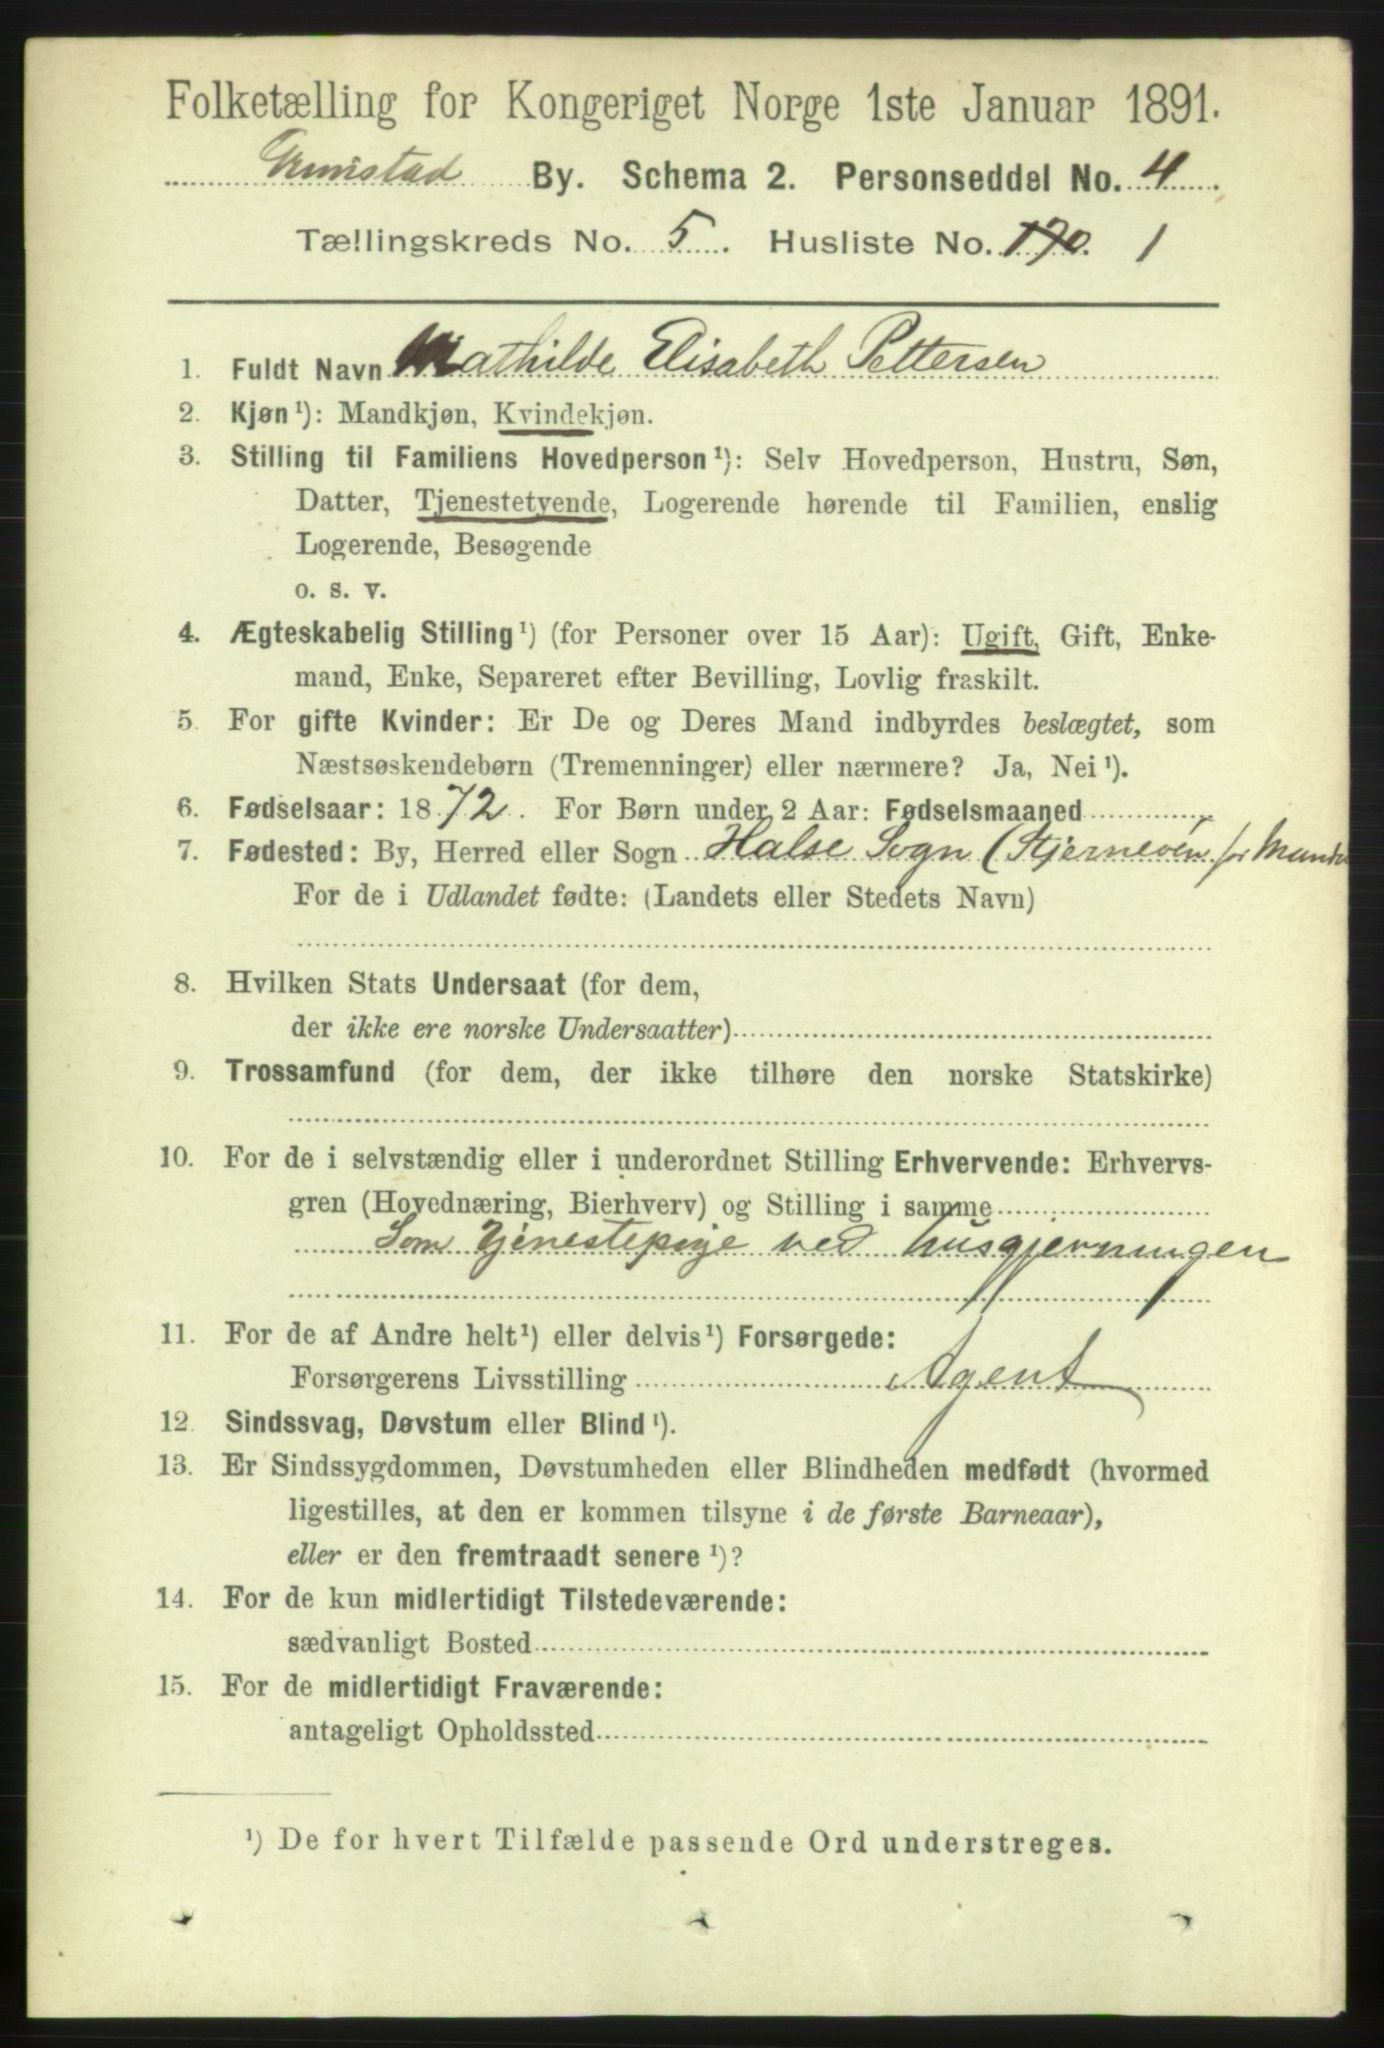 Folketælling for Kongeriget Norge 1ste Januar 1891.
Grimstad By. Schema 2. Personseddel No. 4
Tællingskreds No. 5. Husliste No. 170. 1
1. Fuldt Navn Mathilde Elisabeth Pettersen
2. Kjøn¹): Mandkjøn, Kvindekjøn.
3. Stilling til Familiens Hovedperson¹): Selv Hovedperson, Hustru, Søn,
Datter, Tjenestetyende, Logerende hørende til Familien, enslig
Logerende, Besøgende
o. s. v.
4. Ægteskabelig Stilling¹) (for Personer over 15 Aar): Ugift, Gift, Enke-
mand, Enke, Separeret efter Bevilling, Lovlig fraskilt.
5. For gifte Kvinder: Er De og Deres Mand indbyrdes beslægtet, som
Næstsøskendebørn (Tremenninger) eller nærmere? Ja, Nei¹).
6. Fødselsaar: 1872. For Børn under 2 Aar: Fødselsmaaned
7. Fødested: By, Herred eller Sogn Halse Sogn (Stjerneven for
For de i Udlandet fødte: (Landets eller Stedets Navn)
8. Hvilken Stats Undersaat (for dem,
der ikke ere norske Undersaatter)
9. Trossamfund (for dem, der ikke tilhøre den norske Statskirke)
10. For de i selvstændig eller i underordnet Stilling Erhvervende: Erhvervs-
gren (Hovednæring, Bierhverv) og Stilling i samme
Som Tjenestepige ved husgjerningen
11. For de af Andre helt¹) eller delvis¹) Forsørgede:
Forsørgerens Livsstilling Agent
12. Sindssvag, Døvstum eller Blind¹).
13. Er Sindssygdommen, Døvstumheden eller Blindheden medfødt (hvormed
ligestilles, at den er kommen tilsyne i de første Barneaar),
eller er den fremtraadt senere¹)?
14. For de kun midlertidigt Tilstedeværende:
sædvanligt Bosted
15. For de midlertidigt Fraværende:
antageligt Opholdssted
¹) De for hvert Tilfælde passende Ord understreges.